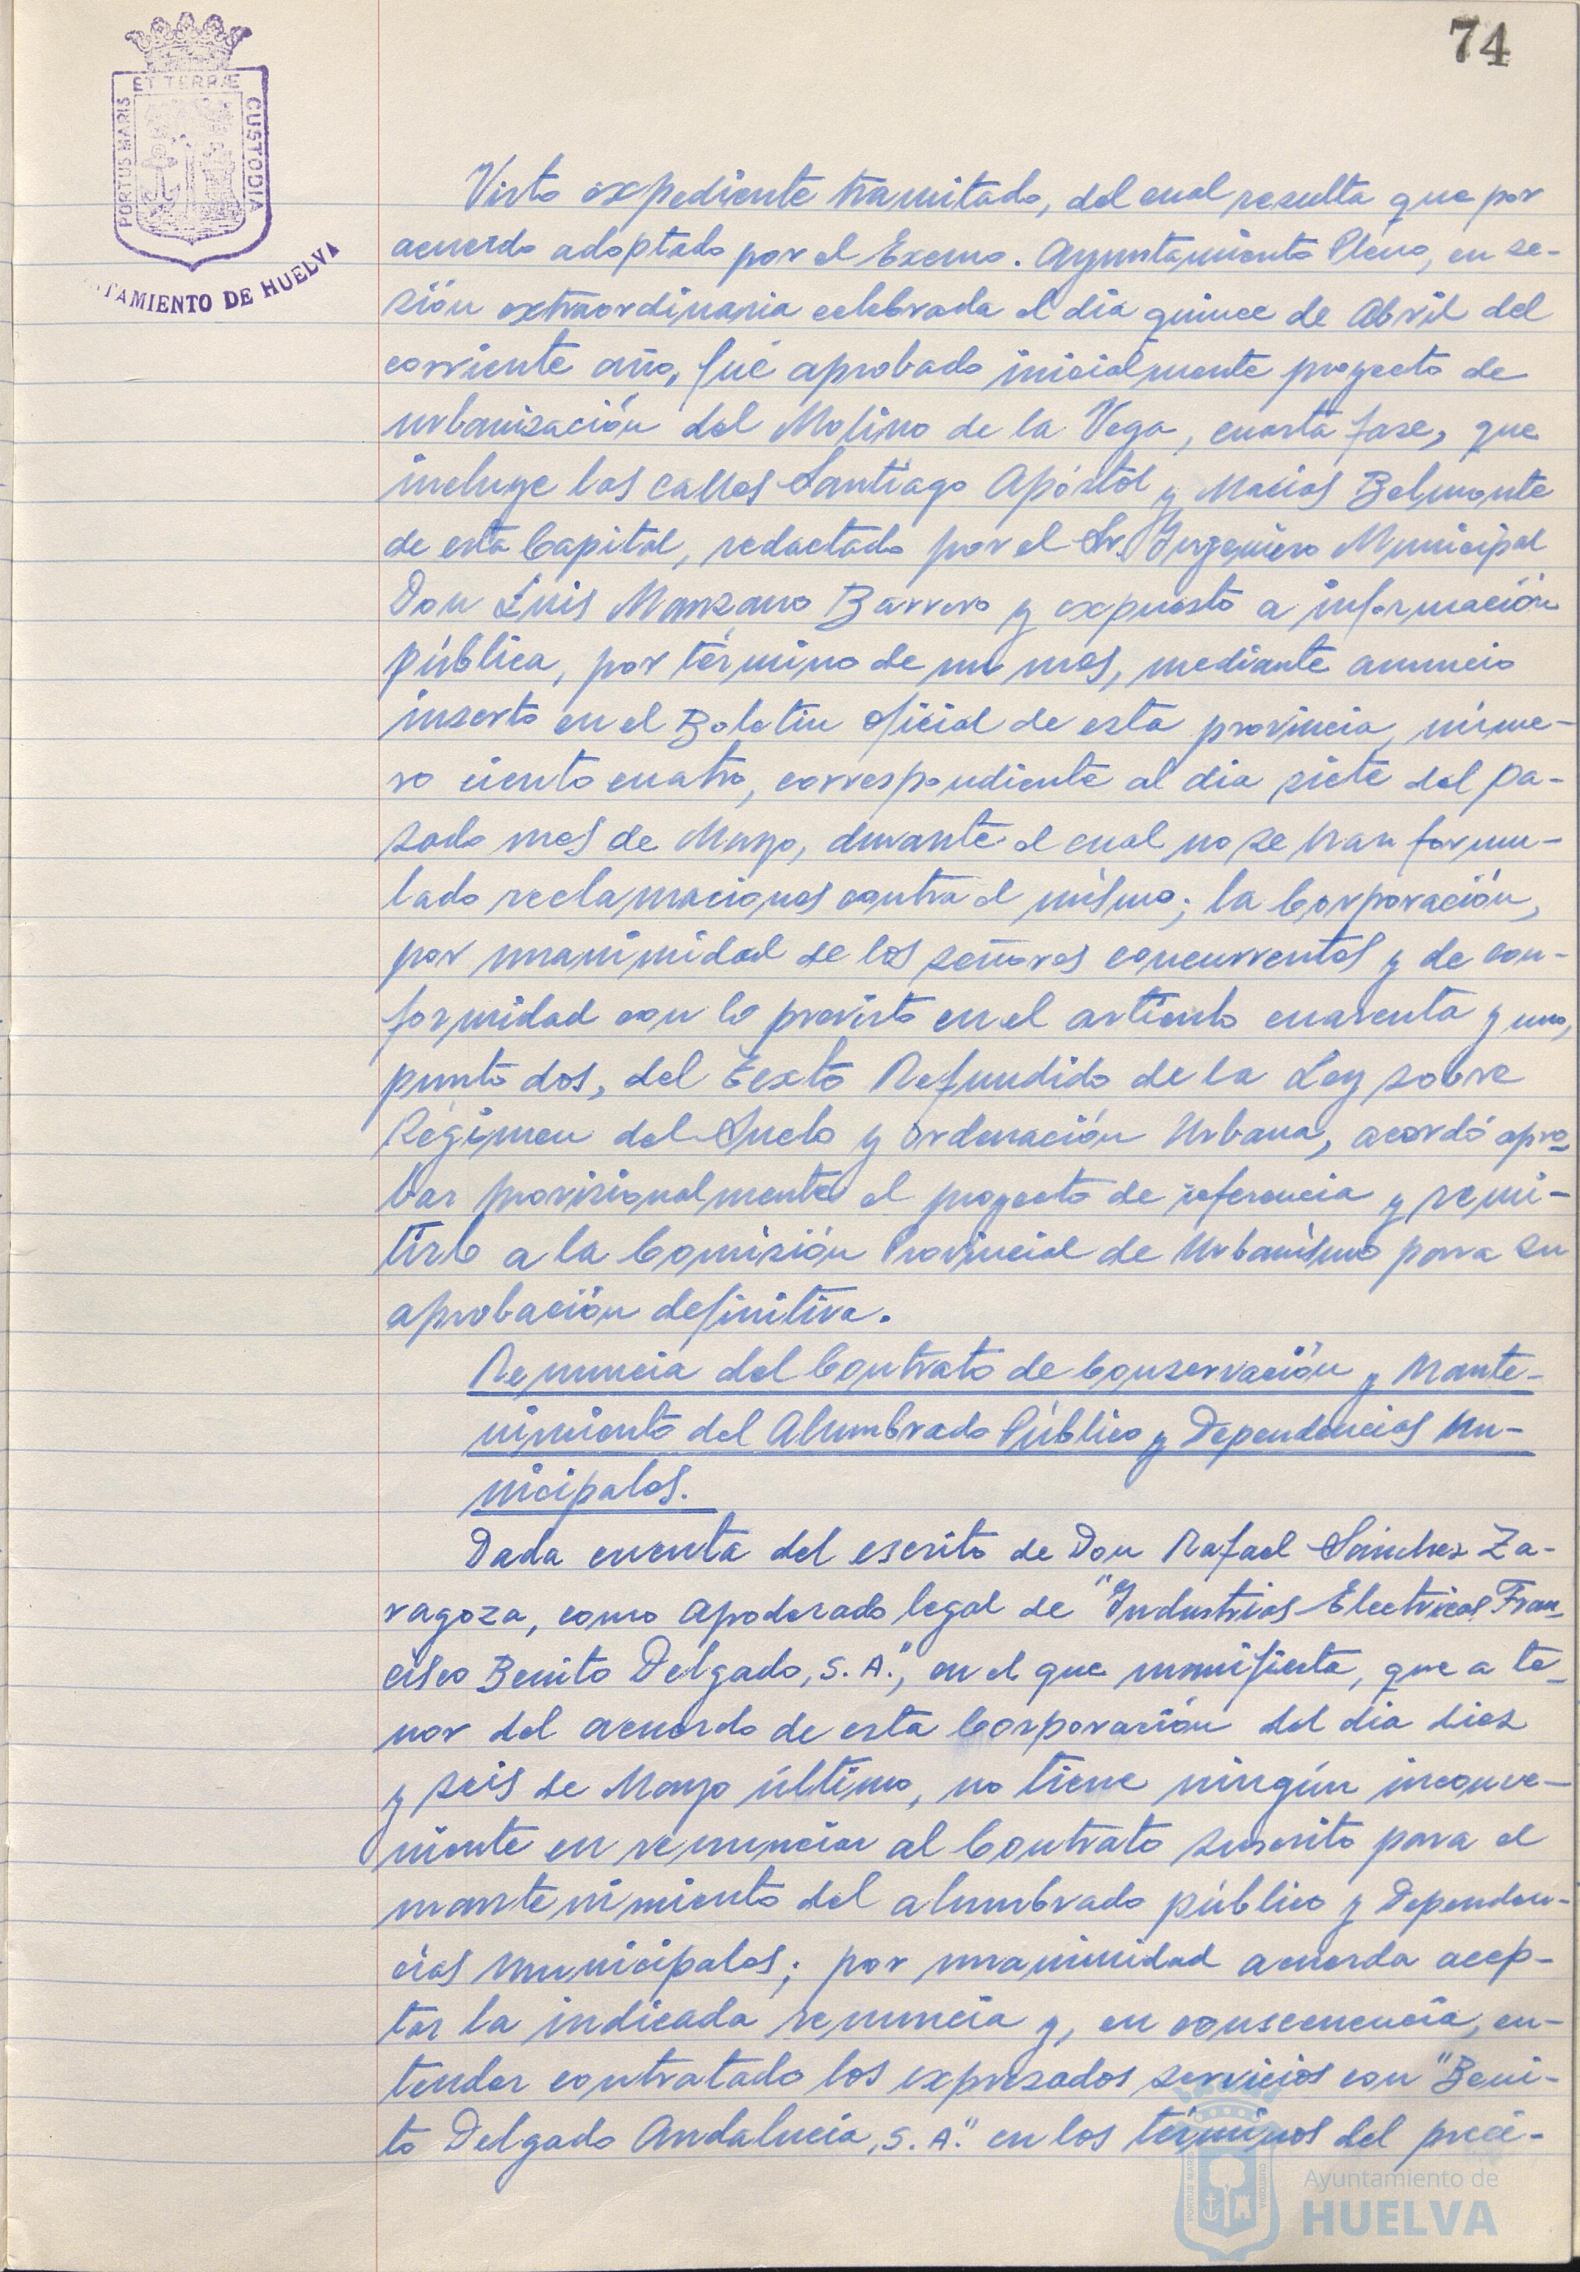 74
ET TERRÆ
PORTUS MARIS
CUSTODIA
TAMIENTO DE HUELVA
Visto expediente tramitado, del cual resulta que por
acuerdo adoptado por el Excmo. Ayuntamiento Pleno, en se-
sión extraordinaria celebrada el dia quince de Abril del
corriente año, fué aprobado inicialmente proyecto de
urbanización del Molino de la Vega, cuarta fase, que
incluye las calles Santiago Apóstol y Macias Belmonte
de esta Capital, redactado por el Sr. Ingeniero Municipal
Don Luis Manzano Barrero y expuesto a información
pública, por término de un mes, mediante anuncio
inserto en el Boletin Oficial de esta provincia, núme-
ro ciento cuatro, correspondiente al dia siete del pa-
sado mes de Mayo, durante el cual no se han formu-
lado reclamaciones contra el mismo; la Corporación,
por unanimidad de los señores concurrentes y de con-
formidad con lo previsto en el artículo cuarenta y uno,
punto dos, del Texto Refundido de la Ley sobre
Régimen del Suelo y Ordenación Urbana, acordó apro-
bar provisionalmente el proyecto de referencia y remi-
tirlo a la Comisión Provincial de Urbanismo para su
aprobación definitiva.
Renuncia del Contrato de Conservación y Mante-
nimiento del Alumbrado Público y Dependencias Mu-
nicipales.
Dada cuenta del escrito de Don Rafael Sánchez Za-
ragoza, como apoderado legal de "Industrias Electricas Fran-
cisco Benito Delgado, S. A.", en el que manifiesta, que a te-
nor del acuerdo de esta Corporación del dia diez
y seis de Mayo último, no tiene ningún inconve-
niente en renunciar al Contrato suscrito para el
mantenimiento del alumbrado público y Dependen-
cias Municipales; por unanimidad acuerda acep-
tar la indicada renuncia y, en consecuencia, en-
tender contratado los expresados servicios con "Beni-
to Delgado Andalucía, S. A." en los términos del preci-
PORTUS MARIS
CUSTODIA
Ayuntamiento de
HUELVA